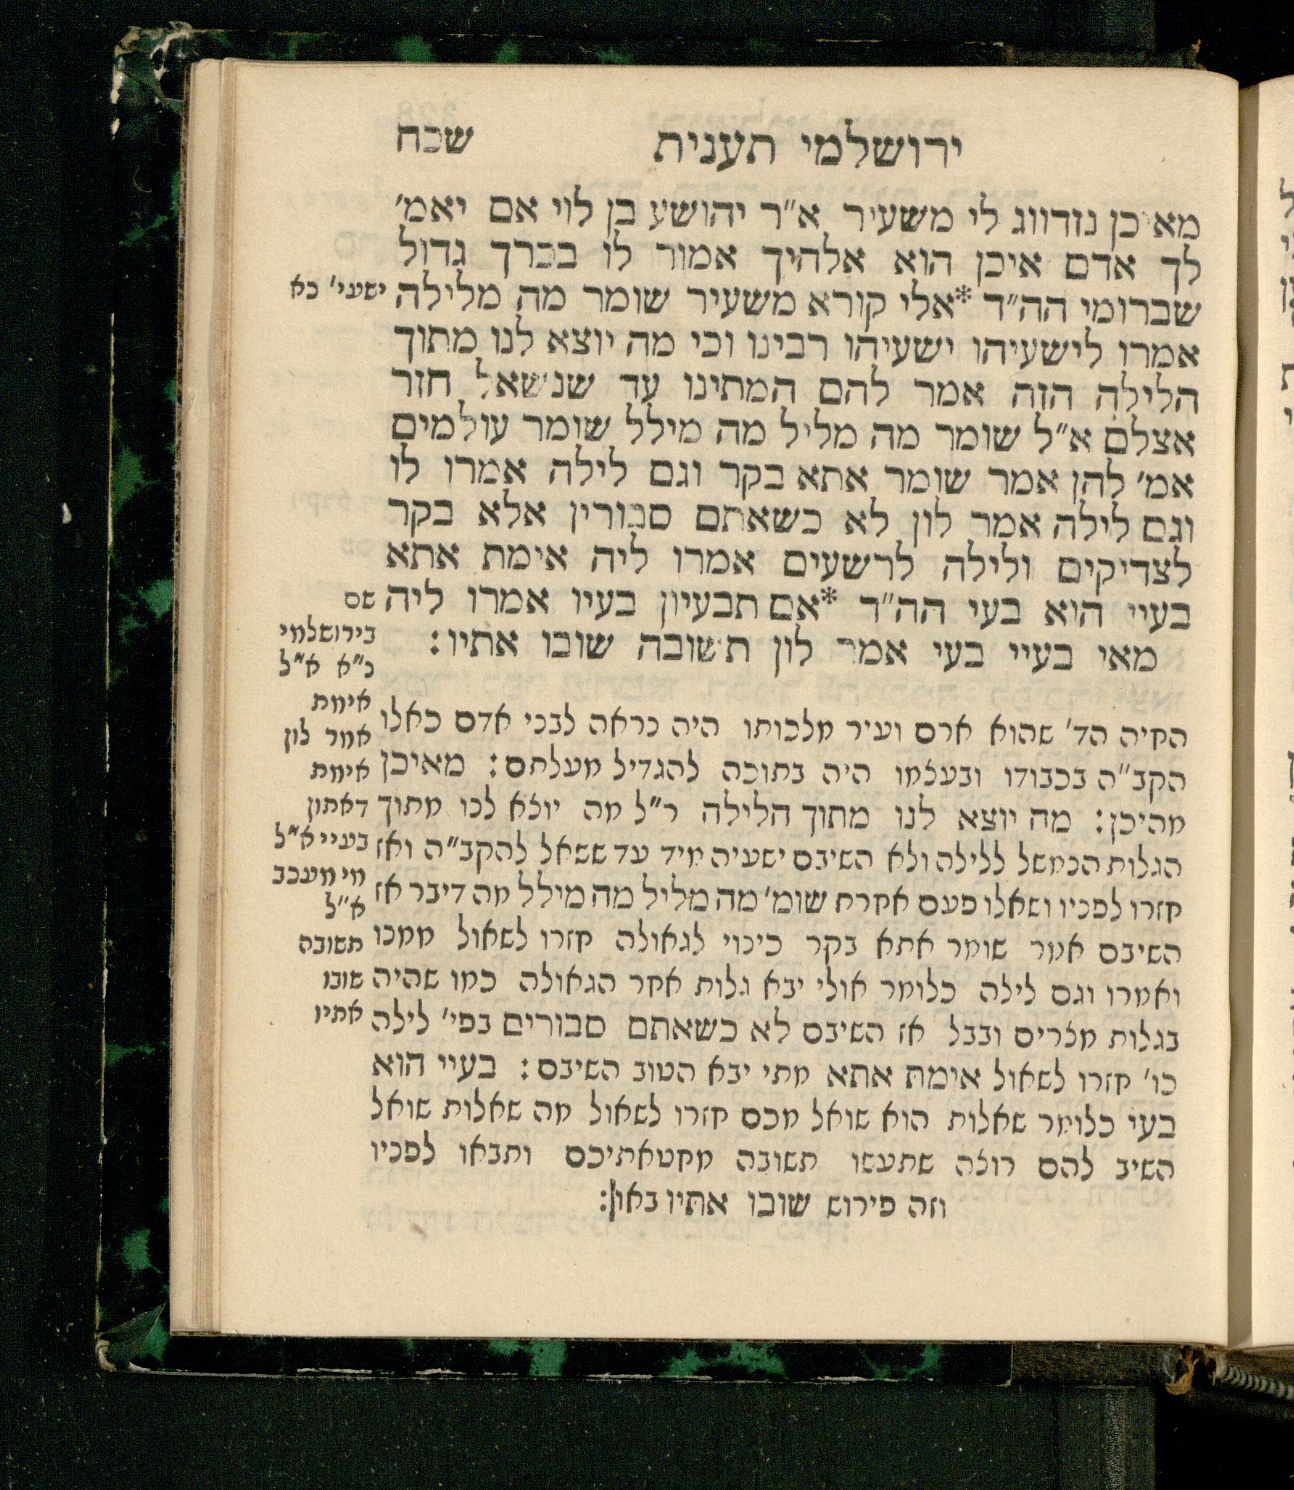 ירושלמי תענית
שכח
מאיכן נזדווג לי משעיר א״ר יהושע בן לוי אם יאמ׳
לך אדם איכן הוא אלהיך אמור לו בכרך גדול
שברומי הה״ד *אלי קורא משעיר שומר מה מלילה
אמרו לישעיהו ישעיהו רבינו וכי מה יוצא לנו מתוך
הלילה הזה אמר להם המתינו עד שנשאל חזר
אצלם א״ל שומר מה מליל מה מילל שומר עולמים
אמ׳ להן אמר שומר אתא בקר וגם לילה אמרו לו
וגם לילה אמר לון לא כשאתם סבורין אלא בקר
לצדיקים ולילה לרשעים אמרו ליה אימת אתא
בעיי הוא בעי הה״ד *אם תבעיון בעיו אמרו ליה
מאי בעיי בעי אמר לון תשובה שובו אתיו:
ישעי׳ כא
שם
בירושלמי
כ״א א״ל
אימת
אמר לון
אימת
דאתון
בעיי א״ל
מי מעכב
א״ל
תשובה
שובו
אתיו
החיה הד׳ שהוא ארם ועיר מלכותו היה נראה לבני אדם כאלו
הקב״ה בכבודו ובעצמו היה בתוכה להגדיל מעלתם: מאיכן
מהיכן: מה יוצא לנו מתוך הלילה ר״ל מה יוצא לנו מתוך
הגלות הנמשל ללילה ולא השיבם ישעיה מיד עד ששאל להקב״ה ואז
חזרו לפניו ושאלו פעם אחרת שומ׳ מה מליל מה מילל מה דיבר אז
השיבם אמר שומר אתא בקר כינוי לגאולה חזרו לשאול ממנו
ואמרו וגם לילה כלומר אולי יבא גלות אחר הגאולה כמו שהיה
בגלות מצרים ובבל אז השיבם לא כשאתם סבורים בפי׳ לילה
כו׳ חזרו לשאול אימת אתא מתי יבא הטוב השיבם: בעיי הוא
בעי כלומר שאלות הוא שואל מכם חזרו לשאול מה שאלות שואל
השיב להם רוצה שתעשו תשובה מחטאתיכם ותבאו לפניו
וזה פירוש שובו אתיו באו: